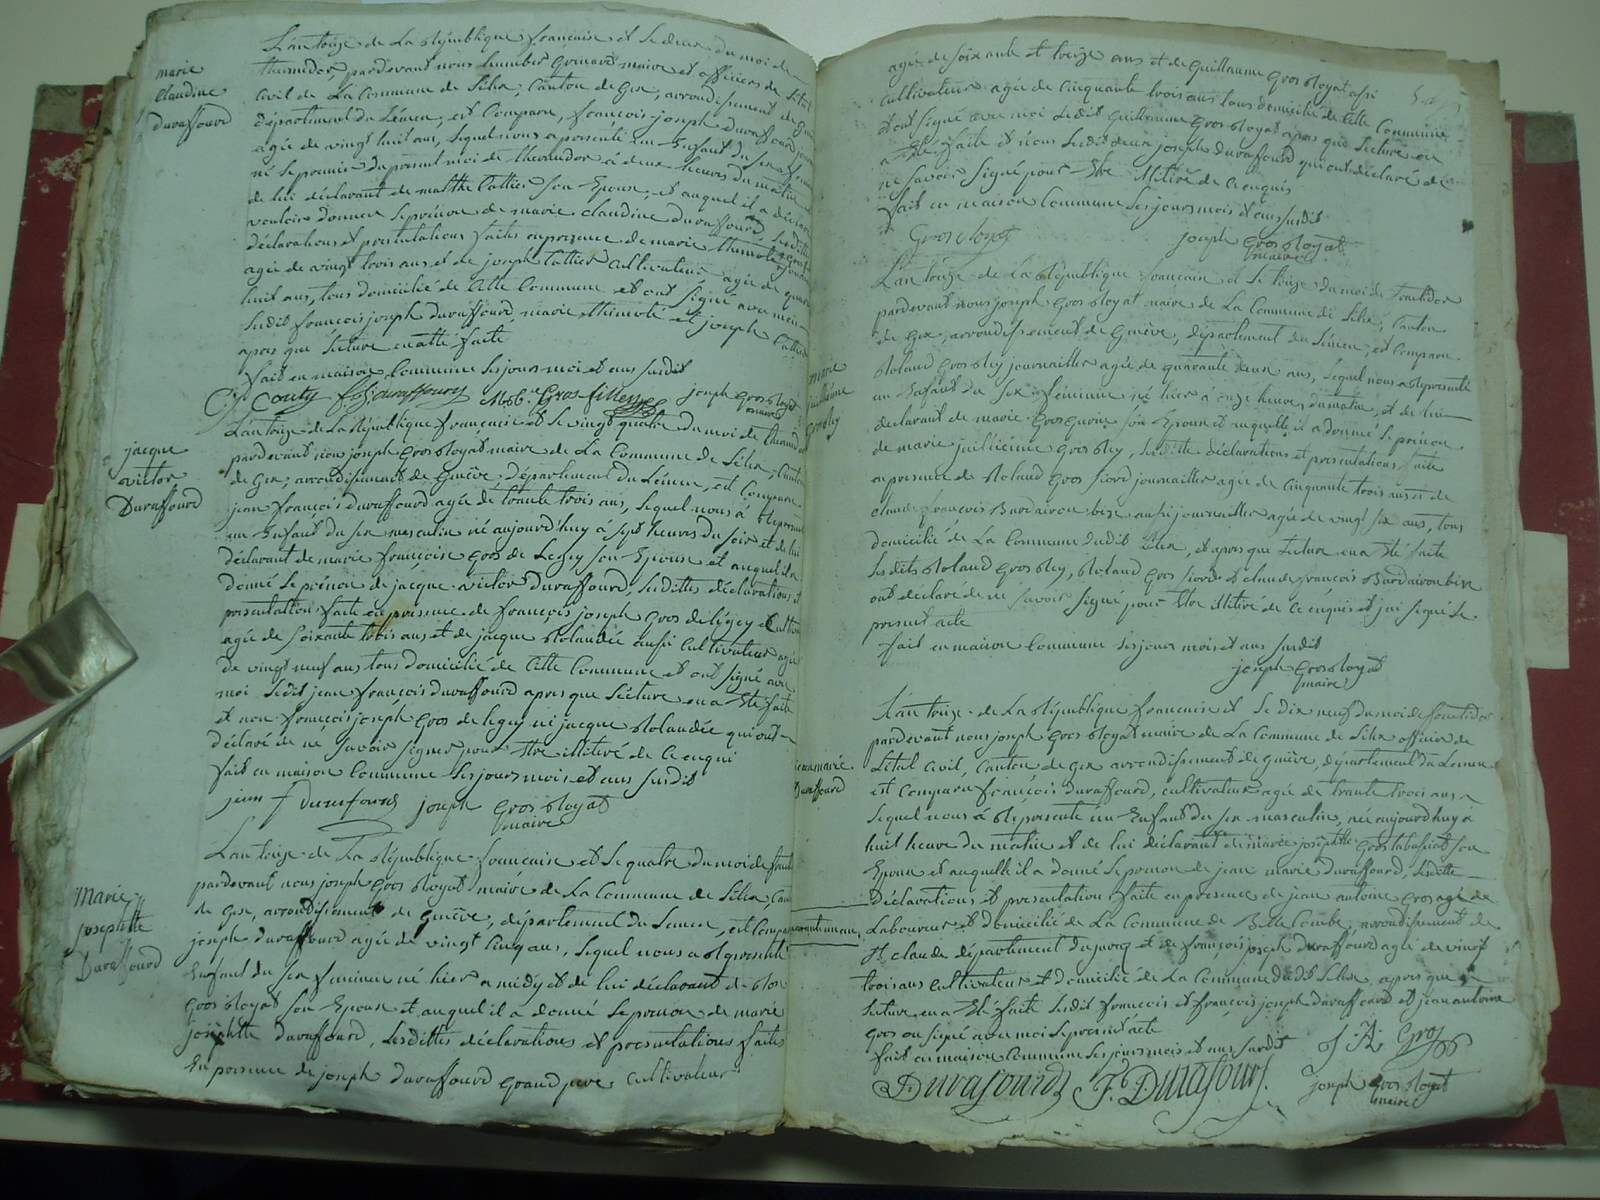 marie
claudine
Duraffourd
L'an treize de La République française et le deux du mois de
thermidor, pardevant nous humbert Grenard maire et officier de l'état
Civil de La Commune de Lélex, Canton de Gex, arrondissement de
département du Léman, est Comparu, françois joseph duraffourd
agée de vingt huit ans, lequel nous a présenté un Enfant du sex
né le premier du présent moi de thermidor à deux heures du matin
de lui déclarant de marthe Cattier son Epouse, et auquel il a déclaré
vouloir donner le prénom de marie claudine duraffourd, lesdittes
déclarations et presentations faites en presence de marie thimoté
agée de vingt trois ans et de joseph Cattier Cultivateur agée de
huit ans, tous domicilié de Cette Commune et ont signé avec moi
ledit françois joseph duraffourd, marie thimoté et joseph Cattier
apres que lecture en a été faite
fait en maison Commune les jours mois et ans susdit
joseph Gros Royat
maire
jacque
victor
Duraffourd
L'an treize de La République française et le vingt quatre du moi de thermidor
pardevant nous joseph Gros Royat maire de La Commune de Lélex, Canton
de Gex, arrondissement de Genève, Département du Léman, est Comparu
jean françois duraffourd agée de trante trois ans, lequel nous à représenté
un Enfant du sex masculin né aujourd'huy à sept heures du soir et de lui
déclarant de marie françoise Gros de Legey son Epouse et auquel il a
donné le prénom de jacque victor Duraffourd, lesdittes déclarations et
presentation faite en presence de françois joseph Gros de légey
agée de soixante trois ans et de jacque Rolandée aussi Cultivateur agée
de vingt neuf ans tous domicilié de Cette Commune et ont signé avec
moi ledit jean françois duraffourd apres que lécture en a été faite
et non françois joseph Gros de legey ni jacque Rolandée qui ont
déclaré de né savoir signer pour être illitiré de Ce enqui
fait en maison Commune les jours mois et ans susdit
jean f Duraffourd joseph Gros Royat
maire
Marie
josephtte
Duraffourd
L'an treize de La République française et le quatre du moi de
pardevant nous joseph Gros Royat maire de La Commune de Lélex, Canton
de Gex, arrondissement de Genève, département du Léman, est Comparu
joseph duraffourd agée de vingt Cinq ans, lequel nous a représenté
Enfant du sex féminin né hier a midy et de lui déclarant de
Gros Royat son Epouse et auquel il a donné le prénom de marie
josephtte duraffourd, lesdittes déclarations et presentations faites
En presence de joseph duraffourd grand pere Cultivateur
agée de soixante et treize ans et de Guillaume Gros Royat aussi
Cultivateur agée de Cinquante trois ans tous domicilié de Cette Commune
et ont signé avec moi ledit Guillaume Gros Royat apres que lecture en
a été faite et nous lesdit deux joseph duraffourd qui ont déclaré de
né savoir signé pour être illitiré de Ce enquis
fait en maison Commune les jours mois et ans susdit
Gros Royat joseph Gros Royat
maire
marie
juillienne
Grosrey
L'an treize de La République française et le treize du moi de fructidor
pardevant nous joseph Gros Royat maire de La Commune de Lélex, Canton
de Gex, arrondissement de Genève, département du Léman, est Comparu
Roland Gros Rey journaillier agée de quarante deux ans, lequel nous a représenté
un Enfant du sex féminin né hier à onze heures du matin, et de lui
déclarant de marie Gros Gurin son Epouse et auquelle il a donné le prénom
de marie juillienne Gros Rey, lesditte déclarations et presentations faite
en presence de Roland Gros fiord journaillier agée de Cinquante trois ans et de
claude françois Burdairon bize aussi journaillier agée de vingt six ans, tous
domicilié de La Commune dudit Lélex, et apres que lecture en a été faite
lesdits Roland Gros Rey, Roland Gros fiord et claude françois Burdairon bize
ont déclaré de né savoir signé pour être illitiré de Ce enquis et j'ai signé le
présent acte
fait en maison Commune les jours mois et ans susdit
joseph Gros Royat
maire
jean marie
Duraffourd
L'an treize de La République française et le dix neuf du moi de fructidor
pardevant nous joseph Gros Royat maire de La Commune de Lélex officier de
L'état Civil, Canton de Gex arrondissement de Genève, département du Léman
est Comparu françois duraffourd, cultivateur agée de trante trois ans
lequel nous à représenté un Enfant du sex masculin, né aujourd'huy à
huit heure du matin et de lui déclarant de marie josephtte Gros tabussiat son
Epouse et auquelle il a donné le prénom de jean marie duraffourd, lesditte
Déclarations et presentation faite en presence de jean antoine Gros agé de
quarante un an, Laboureur et domicilié de La Commune de Belle Combe, arrondissement de
St claude département du jura et de françois joseph duraffourd agée de vingt
trois ans cultivateur et domicilié de La Commune dudit Lélex, apres que
lecture en a été faite ledit françois et françois joseph duraffourd et jean antoine
Gros on signé avec moi le présent acte
fait en maison Commune les jours mois et ans susdit
J. A. Gros
Durafourd F. J. Durafourd joseph Gros Royat
maire